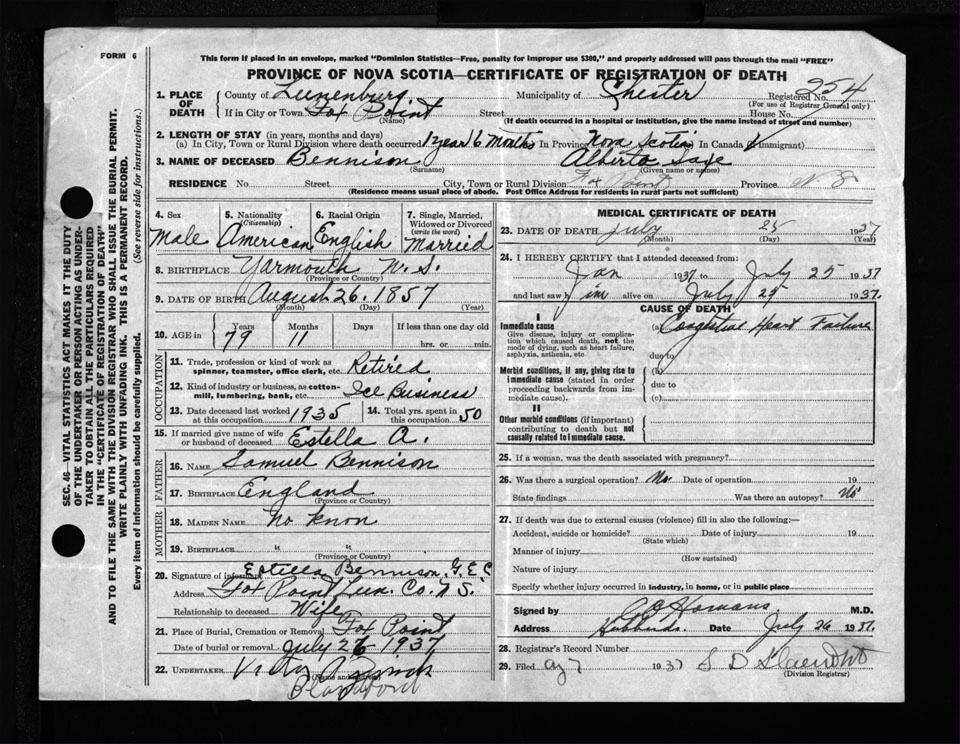 FORM 6
This form if placed in an envelope, marked "Dominion Statistics—Free, penalty for improper use $300," and properly addressed will pass through the mail "FREE"
PROVINCE OF NOVA SCOTIA—CERTIFICATE OF REGISTRATION OF DEATH
SEC. 46—VITAL STATISTICS ACT MAKES IT THE DUTY
OF THE UNDERTAKER OR PERSON ACTING AS UNDER-
TAKER TO OBTAIN ALL THE PARTICULARS REQUIRED
IN THE "CERTIFICATE OF REGISTRATION OF DEATH"
AND TO FILE THE SAME WITH THE DIVISION REGISTRAR WHO SHALL ISSUE THE BURIAL PERMIT.
WRITE PLAINLY WITH UNFADING INK. THIS IS A PERMANENT RECORD.
Every item of information should be carefully supplied. (See reverse side for instructions.)
1. PLACE OF DEATH County of Lunenburg Municipality of Chester Registered No. 254
(For use of Registrar General only)
If in City or Town Fox Point Street House No.
(Name) (If death occurred in a hospital or institution, give the name instead of street and number)
2. LENGTH OF STAY (in years, months and days)
(a) In City, Town or Rural Division where death occurred 1 year 6 months In Province Nova Scotia In Canada (if immigrant)
3. NAME OF DECEASED Bennison Alberto Saxe
(Surname) (Given name or names)
RESIDENCE No. Street City, Town or Rural Division Fox Point Province N S
(Residence means usual place of abode. Post Office Address for residents in rural parts not sufficient)
4. Sex Male
5. Nationality (Citizenship) American
6. Racial Origin English
7. Single, Married, Widowed or Divorced (write the word) Married
8. BIRTHPLACE Yarmouth N.S.
(Province or Country)
9. DATE OF BIRTH August 26. 1857
(Month) (Day) (Year)
10. AGE in Years 79 Months 11 Days If less than one day old hrs. or min.
OCCUPATION
11. Trade, profession or kind of work as spinner, teamster, office clerk, etc. Retired
12. Kind of industry or business, as cotton-mill, lumbering, bank, etc. Ice Business
13. Date deceased last worked at this occupation 1935 14. Total yrs. spent in 50
15. If married give name of wife or husband of deceased Estella A.
FATHER
16. NAME Samuel Bennison
17. BIRTHPLACE England
(Province or Country)
MOTHER
18. MAIDEN NAME no knon
19. BIRTHPLACE " "
(Province or Country)
20. Signature of informant Estella Bennison. G.E.C
Address Fox Point Lun. Co. N.S.
Relationship to deceased Wife
21. Place of Burial, Cremation or Removal Fox Point
Date of burial or removal July 26 1937
22. UNDERTAKER
(Name and address)
MEDICAL CERTIFICATE OF DEATH
23. DATE OF DEATH July 25 1937
(Month) (Day) (Year)
24. I HEREBY CERTIFY that I attended deceased from:
Jan 1937 to July 25 1937
and last saw him alive on July 25 1937.
CAUSE OF DEATH
I
Immediate cause (a) Congestive Heart Failure
Give disease, injury or complication which caused death, not the mode of dying, such as heart failure, asphyxia, asthenia, etc
due to
Morbid conditions, if any, giving rise to immediate cause (stated in order proceeding backwards from immediate cause).
(b)
due to
(c)
II
Other morbid conditions (if important) contributing to death but not causally related to immediate cause.
25. If a woman, was the death associated with pregnancy?
26. Was there a surgical operation? No Date of operation 19
State findings Was there an autopsy? No
27. If death was due to external causes (violence) fill in also the following:—
Accident, suicide or homicide? Date of injury 19
(State which)
Manner of injury
(How sustained)
Nature of injury
Specify whether injury occurred in industry, in home, or in public place
Signed by Homans. M.D.
Address Hubbards Date July 26 1937.
28. Registrar's Record Number
29. Filed Aug 7 1937 S D
(Division Registrar)